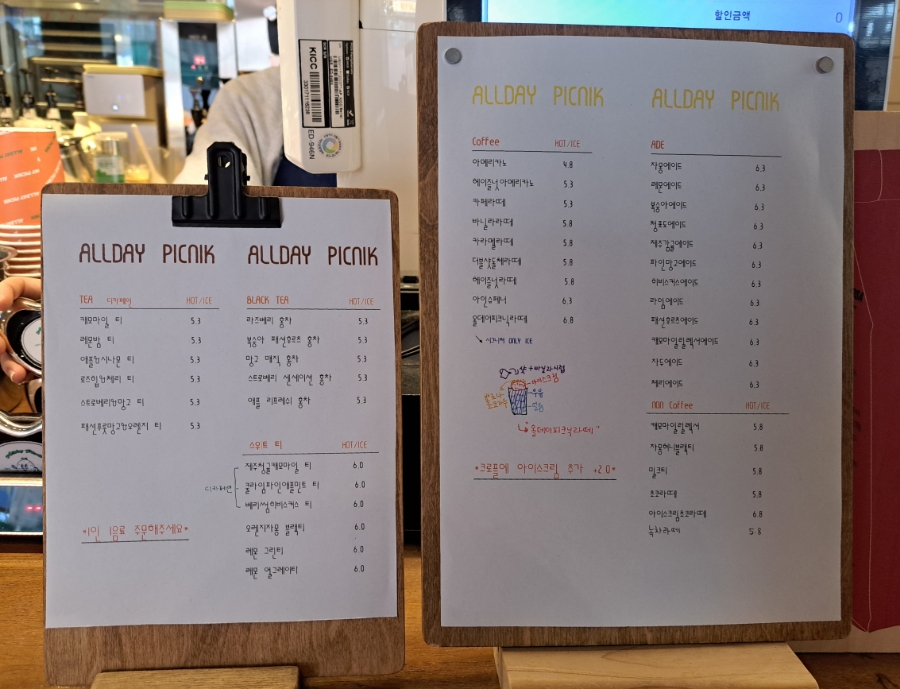 할인금액 0
KICC
ED-946N
ALLDAY PICNIK
TEA 디카페인 HOT/ICE
캐모마일 티 5.3
레몬밤 티 5.3
애플앤시나몬 티 5.3
로즈힙앤체리 티 5.3
스트로베리앤망고 티 5.3
패션후룻망고앤오렌지 티 5.3
*1인 1음료 주문해주세요*
ALLDAY PICNIK
BLACK TEA HOT/ICE
라즈베리 홍차 5.3
복숭아 패션후르츠 홍차 5.3
망고 매직 홍차 5.3
스트로베리 센세이션 홍차 5.3
애플 리프레쉬 홍차 5.3
스위트 티 HOT/ICE
제주청귤캐모마일 티 6.0
디카페인
쿨라임파인애플민트 티 6.0
베리썸히비스커스 티 6.0
오렌지자몽 블랙티 6.0
레몬 그린티 6.0
레몬 얼그레이티 6.0
ALLDAY PICNIK
Coffee HOT/ICE
아메리카노 4.8
헤이즐넛아메리카노 5.3
카페라떼 5.3
바닐라라떼 5.8
카라멜라떼 5.8
더블샷돌체라떼 5.8
헤이즐넛라떼 5.8
아인슈페너 6.3
올데이피크닉라떼 6.8
시그니처 ONLY ICE
샷+바닐라시럽
아이스크림
우유
얼음
"올데이피크닉라떼"
*크로플에 아이스크림 추가 +2.0*
ALLDAY PICNIK
ADE
자몽에이드 6.3
레몬에이드 6.3
복숭아에이드 6.3
청포도에이드 6.3
제주감귤에이드 6.3
파인망고에이드 6.3
히비스커스에이드 6.3
라임에이드 6.3
패션후르츠에이드 6.3
캐모마일릴렉서에이드 6.3
자두에이드 6.3
체리에이드 6.3
NON Coffee HOT/ICE
캐모마일릴렉서 5.8
자몽허니블랙티 5.8
밀크티 5.8
초코라떼 5.8
아이스크림초코라떼 6.8
녹차라떼 5.8